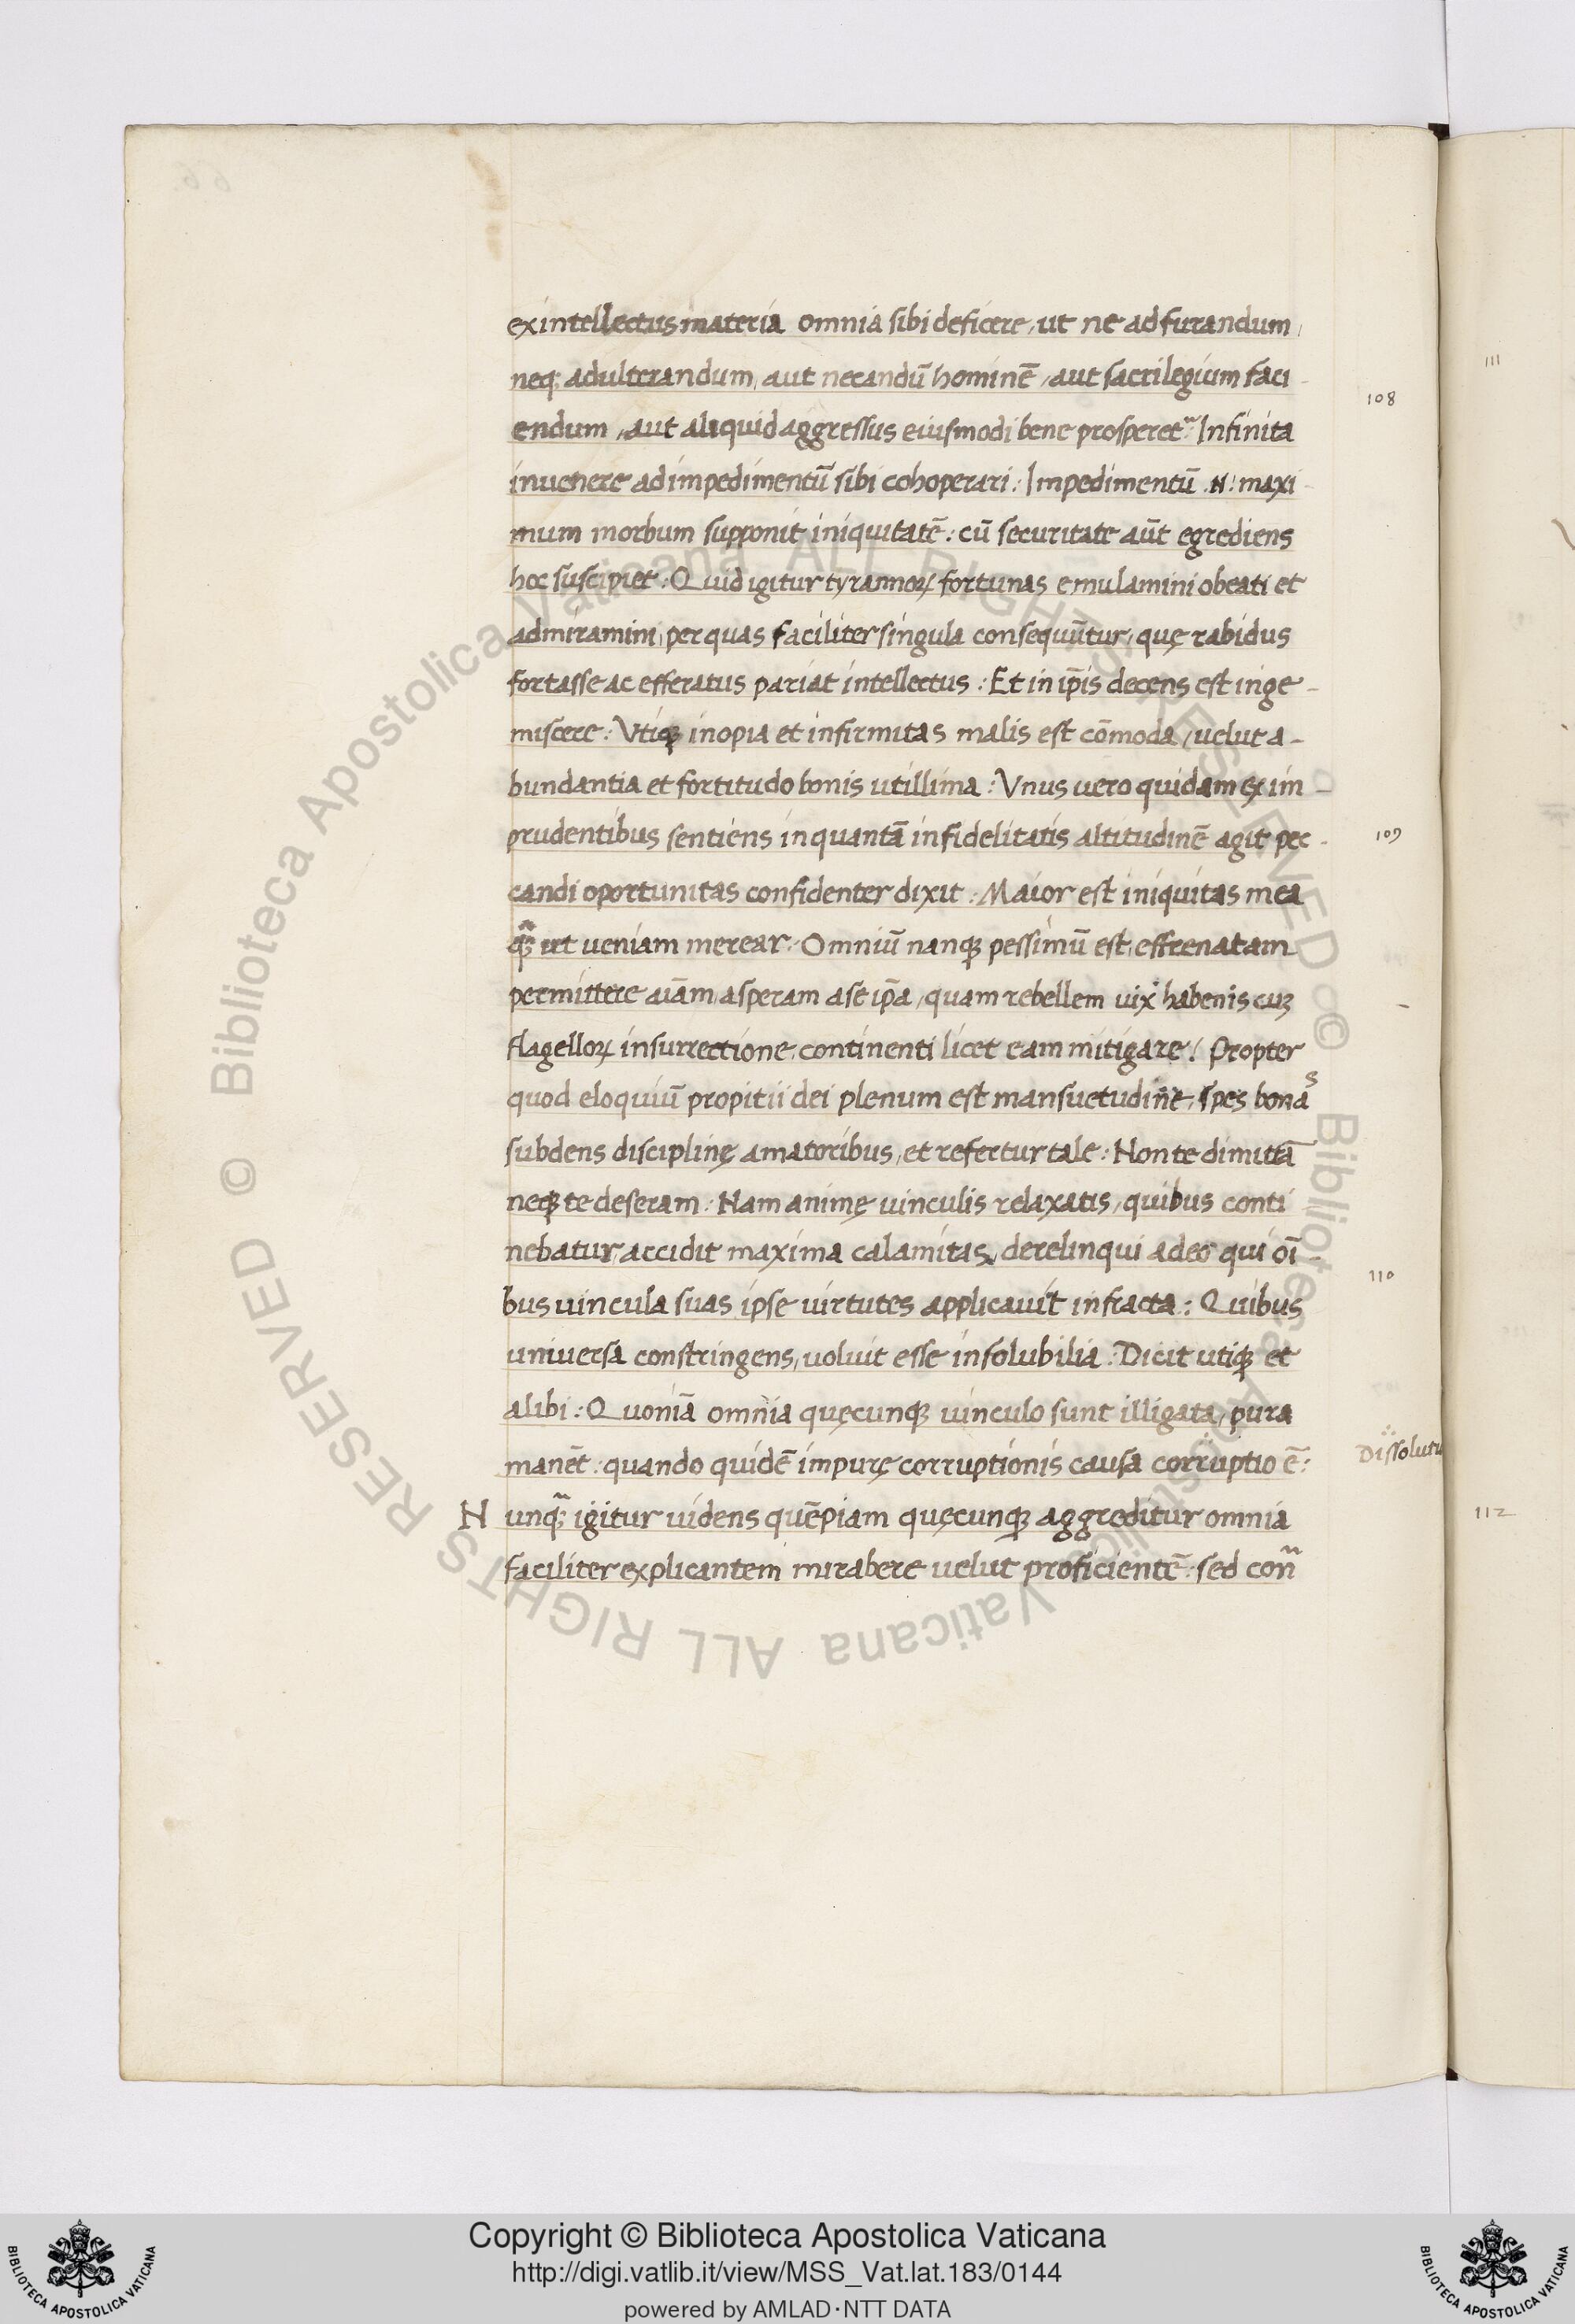 ex intellectus materia omnia sibi deficere, ut ne ad furandum,
neq; adulterandum, aut necandū hominē, aut sacrilegium faci-
endum, aut aliquid aggressus eiusmodi bene prosperet᷑: Infinita
inuenere ad impedimentū sibi cohoperari: Impedimentū .N. maxi-
mum morbum supponit iniquitatē: cū securitate aūt egrediens
hoc suscipiet: Quid igitur tyrannoꝝ fortunas emulamini o beati et
admiramini, per quas faciliter singula consequūtur, quę rabidus
fortasse ac efferatus pariat intellectus: Et in ip̄is decens est inge-
miscere: Vtiqꝫ inopia et infirmitas malis est cōmoda, uelut a-
bundantia et fortitudo bonis utillima: Vnus uero quidam ex im-
prudentibus sentiens in quantā infidelitatis altitudinē agit pec-
candi oportunitas confidenter dixit: Maior est iniquitas mea
q̃ꝫ ut ueniam merear: Omniū nanqꝫ pessimū est, effrenatam
permittere aīam, asperam a se ip̄a, quam rebellem uix habenis cuꝫ
flagelloꝝ insurrectione, continenti licet eam mitigare! Propter
quod eloquiū propitii dei plenum est mansuetudine, spes bonas
subdens disciplinę amatoribus, et refertur tale: Non te dimittā
neqꝫ te deseram: Nam animę uinculis relaxatis, quibus conti
nebatur, accidit maxima calamitas, derelinqui a deo qui oī-
bus uincula suas ipse uirtutes applicauit infracta: Quibus
uniuersa constringens, uoluit esse insolubilia: Dicit utiqꝫ et
alibi: Quoniā omnia quęcunqꝫ uinculo sunt illigata, pura
manēt: quando quidē impurę corruptionis causa corruptio ē:
Nunq̃ꝫ igitur uidens quēpiam quęcunqꝫ aggreditur omnia
faciliter explicantem mirabere uelut proficientē: sed con̄
108
109
110
Dissolutu
111
112
Copyright © Biblioteca Apostolica Vaticana
http://digi.vatlib.it/view/MSS_Vat.lat.183/0144
powered by AMLAD·NTT DATA
BIBLIOTECA APOSTOLICA VATICANA
BIBLIOTECA APOSTOLICA VATICANA
© Biblioteca Apostolica Vaticana ALL RIGHTS RESERVED
© Biblioteca Apostolica Vaticana ALL RIGHTS RESERVED